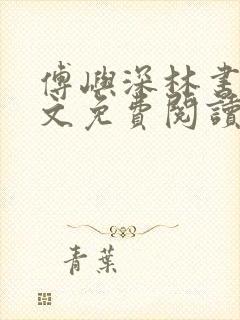 傅嶼深林書
文免費閱讀
青葉